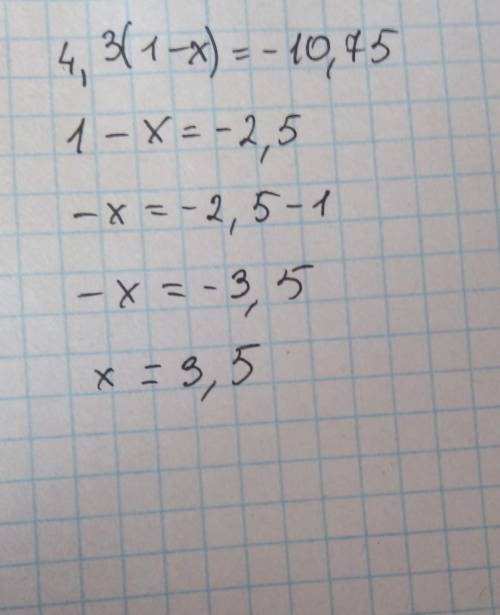 4,3(1-x)=-10,75
1-x=-2,5
-x=-2,5-1
-x=-3,5
x=3,5